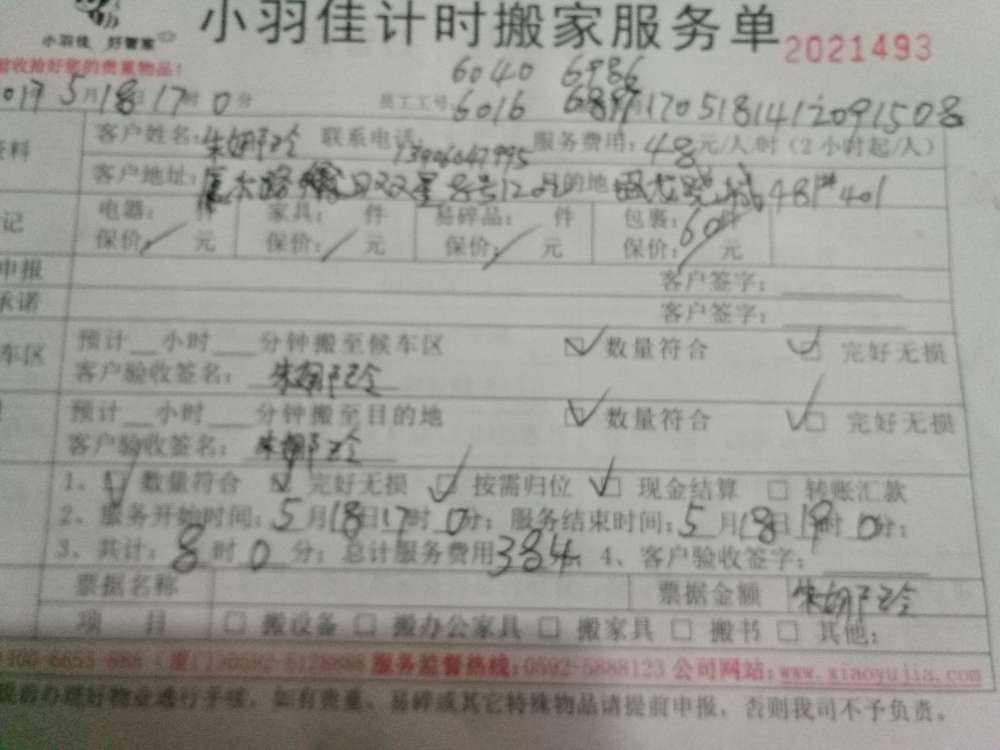 小羽佳计时搬家服务单 2021493
小羽佳 好管家
收拾好您的贵重物品!
6040 6986
2017 5月18日17时0分 员工工号: 6016 1705181412091508
资料 客户姓名: 联系电话: 服务费用: 48元/人/时(2小时起/人)
客户地址: 目的地 481# 401
记 电器: 件 家具: 件 易碎品: 件 包裹: 60件
保价: / 元 保价: / 元 保价: / 元 保价: / 元
申报 客户签字:
承诺 客户签字:
车区 预计__小时___分钟搬至候车区 数量符合 完好无损
客户验收签名:
预计__小时___分钟搬至目的地 数量符合 完好无损
客户验收签名:
1、数量符合 完好无损 按需归位 现金结算 转账汇款
2、服务开始时间: 5月18日17时0分; 服务结束时间: 5月18日19时0分;
3、共计: 8时0分; 总计服务费用384 4、客户验收签字:
票据名称 票据金额
项 目 搬设备 搬办公家具 搬家具 搬书 其他:
服务监督热线:0592-5888123 公司网站:www.xiaoyujia.com
办理好物业通行手续, 如有贵重、易碎或其它特殊物品请提前申报, 否则我司不予负责。